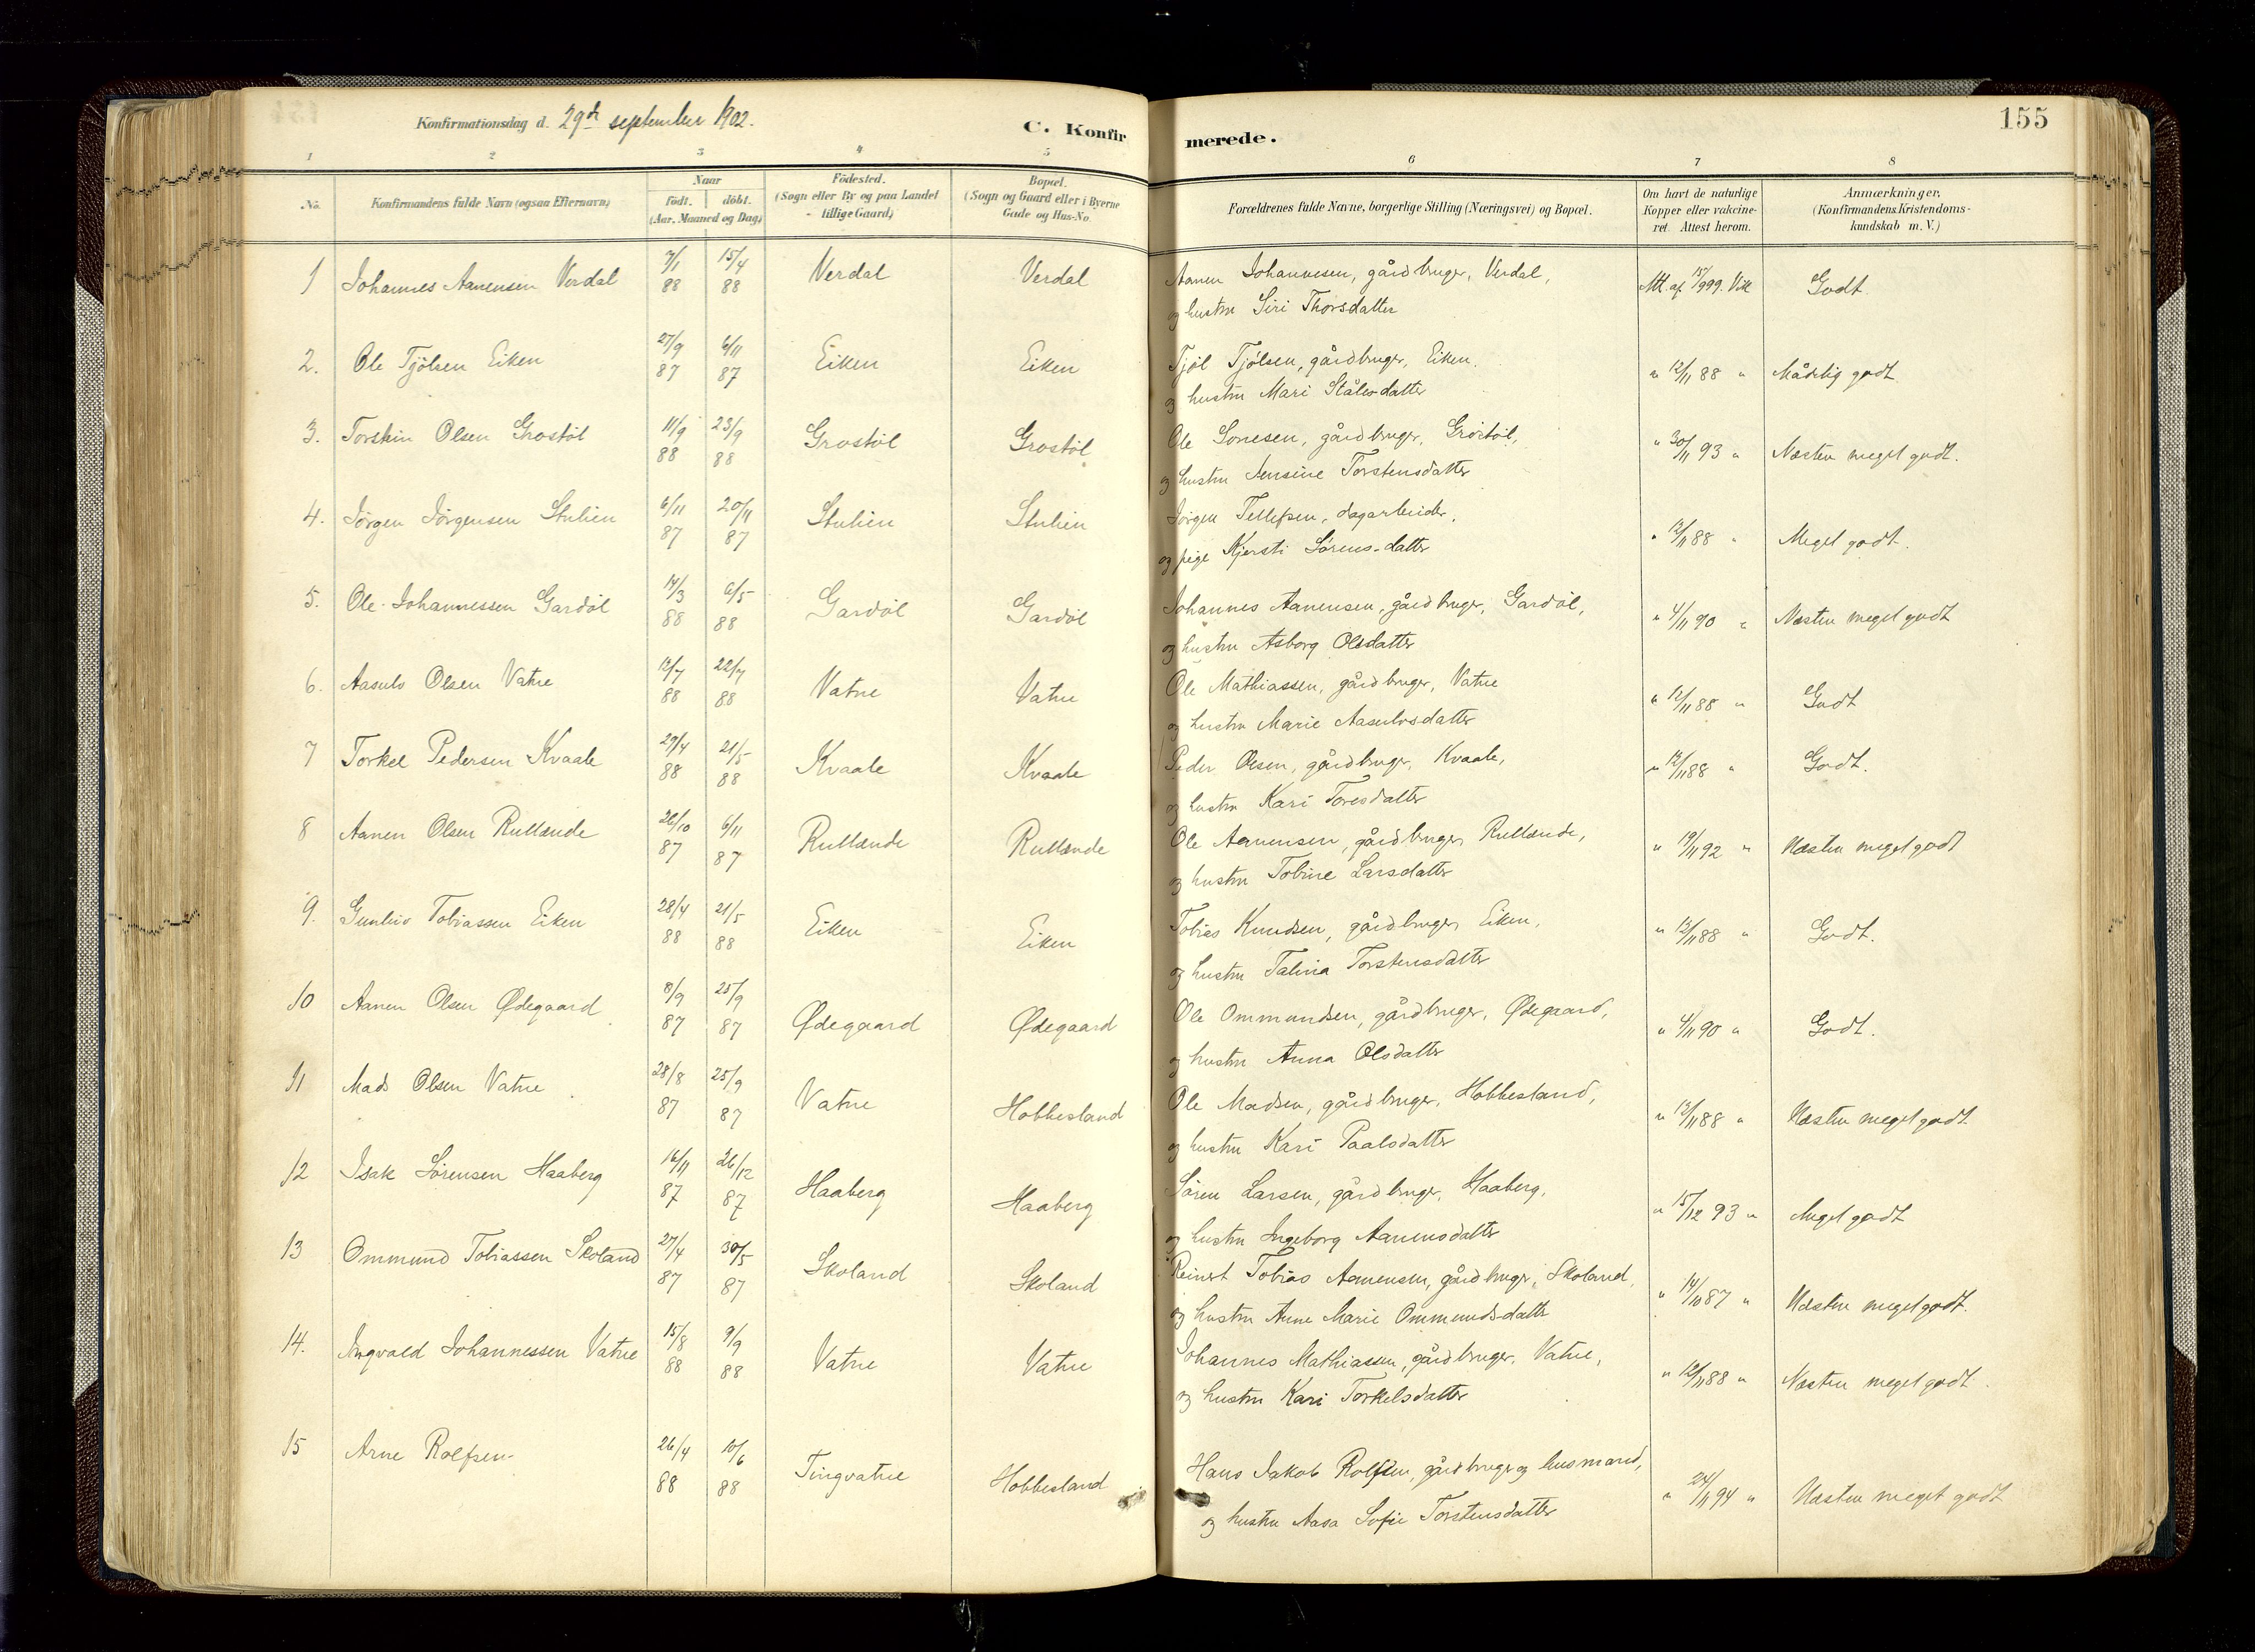 155
Konfirmationsdag d. 29de september 1902.
C. Konfirmerede.
1 2 3 4 5 6 7 8
No. Konfirmandens fulde Navn (ogsaa Efternavn) Naar födt. döbt. (Aar, Maaned og Dag) Födested. (Sogn eller By og paa Landet tillige Gaard) Bopæl. (Sogn og Gaard eller i Byerne Gade og Hus-No. Forældrenes fulde Navne, borgerlige Stilling (Næringsvei) og Bopæl. Om havt de naturlige Kopper eller vakcineret. Attest herom. Anmærkninger. (Konfirmandens Kristendomskundskab m. V.)
1 Johannes Aanensen Verdal 7/1 88 15/4 88 Verdal Verdal Aanen Johannesen, gårdbruger, Verdal, Att. af 15/9 99. Godt.
og hustru Siri Thorsdatter
2. Ole Tjölsen Eiken 27/9 87 6/11 87 Eiken Eiken Tjöl Tjölsen, gårdbruger, Eiken. " 12/11 88 " Mådelig godt.
og hustru Mari Ståles-datter
3. Torstein Olsen Grostöl 11/9 88 23/9 88 Grostöl Grostöl Ole Sonesen, gårdbruger, Gröstöl, " 30/11 93 " Næsten meget godt.
og hustru Jensine Torstensdatter
4. Jörgen Jörgensen Stulien 6/11 87 20/11 87 Stulien Stulien Jörgen Tellefsen, dagarbeider, " 12/11 88 " Meget godt.
og pige Kjersti Sörens-datter
5. Ole Johannessen Gardöl 14/3 88 6/5 88 Gardöl Gardöl Johannes Aanensen, gårdbruger, Gardöl, " 4/11 90 " Næsten meget godt
og hustru Asborg Olsdatter
6. Aasulv Olsen Vatne 12/7 88 22/7 88 Vatne Vatne Ole Mathiassen, gårdbruger, Vatne " 12/11 88 " Godt
og hustru Marie Aasulvsdatter
7 Torkel Pedersen Kvaale 29/4 88 21/5 88 Kvaale Kvaale Peder Olsen, gårdbruger, Kvaale, " 12/11 88 " Godt.
og hustru Kari Toresdatter
8 Aanen Olsen Rullænde 26/10 87 6/11 87 Rullænde Rullænde Ole Aanensen, gårdbruger, Rullænde, " 19/11 92 " Næsten meget godt
og hustru Tobine Larsdatter
9. Gunleiv Tobiassen Eiken 28/4 88 21/5 88 Eiken Eiken Tobias Knudsen, gårdbruger, Eiken, " 12/11 88 " Godt.
og hustru Talina Torstensdatter
10 Aanen Olsen Ødegaard 8/9 87 25/9 87 Ødegaard Ødegaard Ole Ommundsen, gårdbruger, Ødegaard, " 4/11 90 " Godt.
og hustru Anna Olsdatter
11 Mads Olsen Vatne 28/8 87 25/9 87 Vatne Hobbesland Ole Madsen, gårdbruger, Hobbesland, " 12/11 88 " Næsten meget godt.
og hustru Kari Paalsdatter
12 Isak Sörensen Haaberg 16/11 87 26/12 87 Haaberg Haaberg Sören Larsen, gårdbruger, Haaberg, " 15/12 93 " Meget godt
og hustru Ingeborg Aanensdatter
13 Ommund Tobiassen Skoland 27/4 87 30/5 87 Skoland Skoland Reinert Tobias Aanensen, gårdbruger, Skoland, " 14/10 87 " Næsten meget godt.
og hustru Anne Marie Ommunds-datter
14. Ingvald Johannessen Vatne 15/8 88 9/9 88 Vatne Vatne Johannes Mathiassen, gårdbruger, Vatne, " 12/11 88 " Næsten meget godt.
og hustru Kari Torkelsdatter
15 Arne Rolfsen 26/4 88 10/6 88 Tingvatne Hobbesland Hans Jakob Rolfsen, gårdbruger og husmand, " 24/11 94 " Næsten meget godt
og hustru Aasa Sofie Torstensdatter